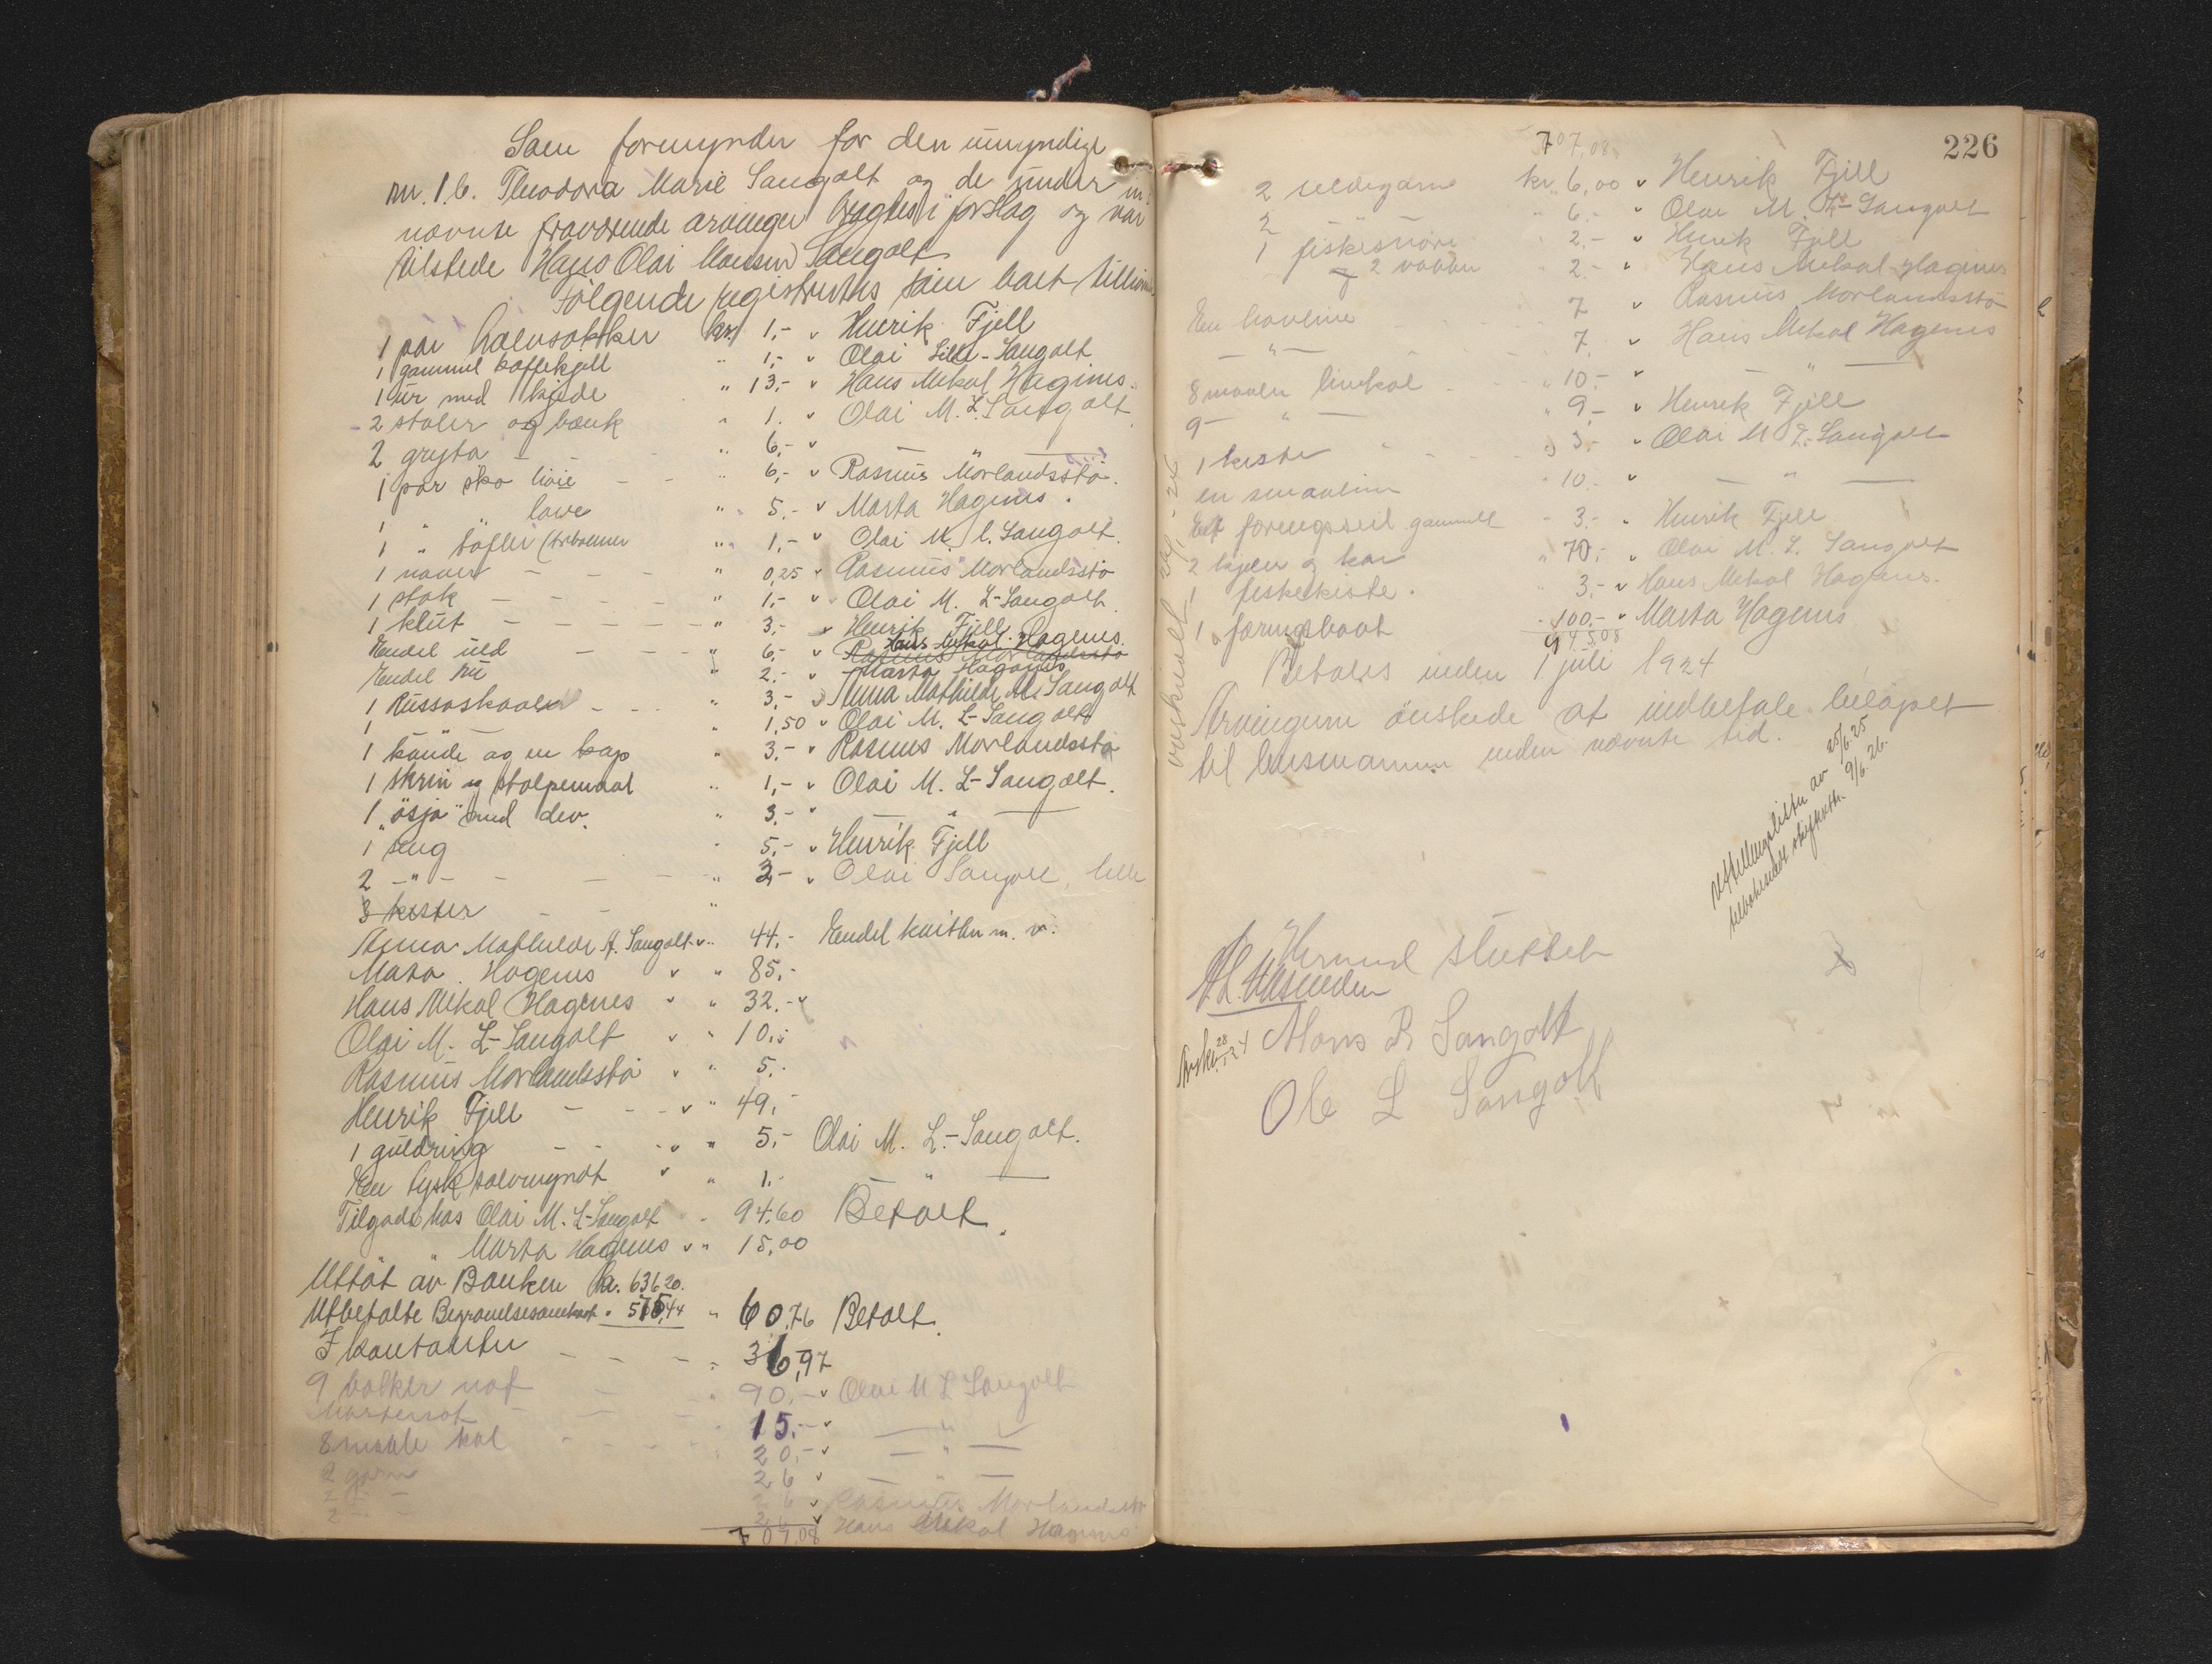 Som formynder for den umyndige
nr. 1.6. Theodora Marie Sangolt og de under nr.
nævnte fraværende arvinger bragtes i forslag og var
tilstede Hans Olai Monsen Sangolt
Følgende registrertes som
1 par halvsokker kr. 1,- v Henrik Fjell
1 gammel kaffekjell " 1,- v Olai Lille-Sangolt
1 ur med kjede " 13,- v Hans Mekal Hagenes.
2 stoler og bænk " 1. v Olai M. L. Sangolt
2 gryta - - " 6,- v — " —
1 par sko høie - - " 6,- v Rasmus Morlandsstø.
1 " " lave " 5,- v Marta Hagenes.
1 " tøfler " 1,- v Olai M. L. Sangolt.
1 naver - - - " 0,25 v Rasmus Morlandsstø
1 stak - - - - " 1,- v Olai M. L-Sangolt.
1 klut - - - - - " 3,- v Henrik Fjell
Endel uld - - - " 6,- v Hans Mekal Hagenes. Rasmus Morlandsstø
Endel " 2.- v Marta Hagenes
1 Russaskaaler - - . " 3,- v Anna Mathilde A. Sangolt
1 " 1,50 v Olai M. L-Sangolt
1 kande og en kap " 3.- v Rasmus Morlandsstø
1 skrin og stolpemaal " 1,- v Olai M. L-Sangolt.
1 "øsja" med div. " 3.- v — " —
1 seng " 5,- v Henrik Fjell
2 -"- - - - " 3,- v Olai Sangolt, lille
3 kister - - "
Anna Mathilde A. Sangolt v " 44,- Endel m. v.
Marta Hagenes v " 85,-
Hans Mekal Hagenes v " 32.- v
Olai M. L-Sangolt v " 10.-
Rasmus Morlandsstø v " 5.-
Henrik Fjell - - - v " 49,-
1 guldring - - - v " 5,- Olai M. L.-Sangolt.
En tysk sølvmynt v " 1.- — " —
Tilgode hos Olai M. L-Sangolt - 94,60 Betalt.
" " Marta Hagenes v " 15,00
Uttat av Banken kr. 636 20.
Utbetalte Begravelsesomkost. " 575,44 " 60,76 Betalt.
I kontanter - - - " 36,97
9 bolker not - " 90,- v Olai M L Sangolt
- - " 15.- v — " —
8 maale kol - - - - " 20,- v — " —
2 garn 26 v — " —
2 - - 26 v Rasmus Morlandsstø
2 - - 26 v Hans Mekal Hagenes
707,08
226
707,08
2 sildegarn kr. 6,00 v Henrik Fjell
2 " 6.- " Olai M. L-Sangolt
1 fiskesnøre " 2,- v Henrik Fjell
2 " 2.- v Hans Mekal Hagenes
En 7 v Rasmus Morlandsstø
— " — 7. v Hans Mekal Hagenes
8 maaler " 10.- v — " —
9 - " - " 9,- v Henrik Fjell
1 kiste - - - " 3.- v Olai M L-Sangolt
en " 10.- v — " —
Et færingsseil gammelt " 3.- " Henrik Fjell
2 kjeler og kar " 70,- " Olai M. L. Sangolt
1 fiskekiste. " 3,- v Hans Mekal Hagenes.
1 færingsbaat " 100.- v Marta Hagenes
945,08
Betales inden 1 juli 1924
Arvingerne ønskede at indbetale beløpet
til lensmannen inden nævnte tid.
Utstillingslisten av 25/6.25
9/6.26.
Mons R Sangolt
28/1.24
Ole L Sangolt